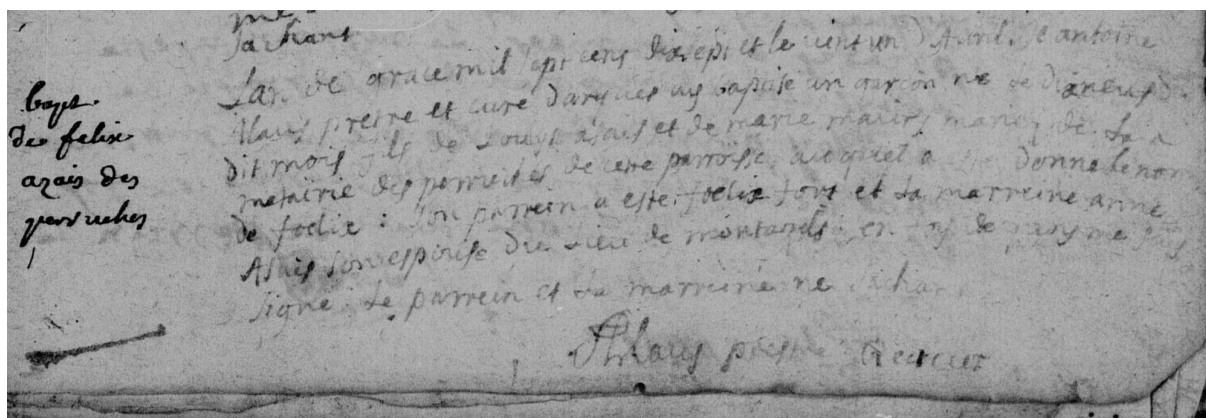 sachant
bapt.
de felix
azais des
perruches
Lan de grace mil sept cens dixsept et le vint un d'Avril, e antoine
Alaus pretre et curé darques ay baptisé un garcon ne le dixneus du
dit mois fils de Louys asais et de marie maury maries de la
metairie des perruches de cette parroisse auquel a esté donne le nom
de foelix : son parrein a esté foelix fort et la marreine anne
Asais son espouse du lieu de montands en foy de quoy me suis
signe. Le parrein et la marreine ne sachan
Alaus prestre Recteur